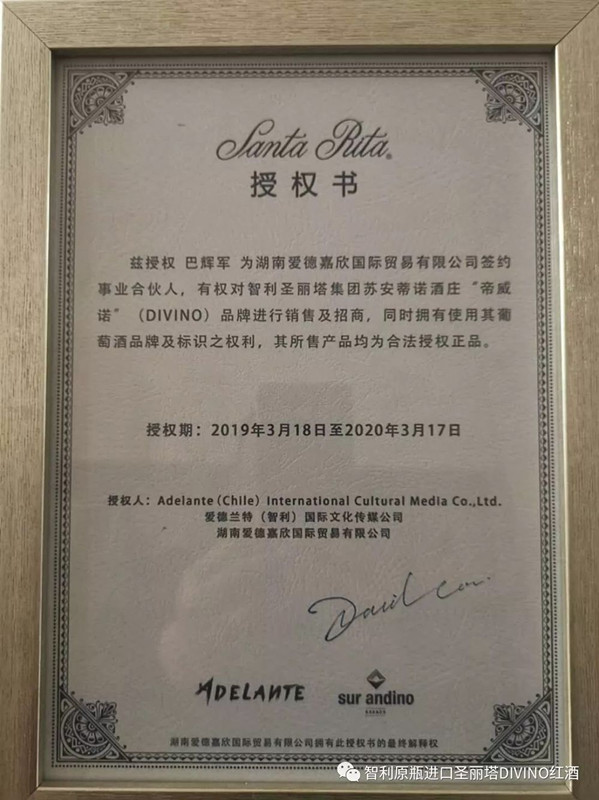 Santa Rita®
授权书
兹授权 巴辉军 为湖南爱德嘉欣国际贸易有限公司签约
事业合伙人，有权对智利圣丽塔集团苏安蒂诺酒庄“帝威
诺”（DIVINO）品牌进行销售及招商，同时拥有使用其葡
萄酒品牌及标识之权利，其所售产品均为合法授权正品。
授权期：2019年3月18日至2020年3月17日
授权人：Adelante（Chile）International Cultural Media Co.,Ltd.
爱德兰特（智利）国际文化传媒公司
湖南爱德嘉欣国际贸易有限公司
ADELANTE
sur andino
湖南爱德嘉欣国际贸易有限公司拥有此授权书的最终解释权
智利原瓶进口圣丽塔DIVINO红酒